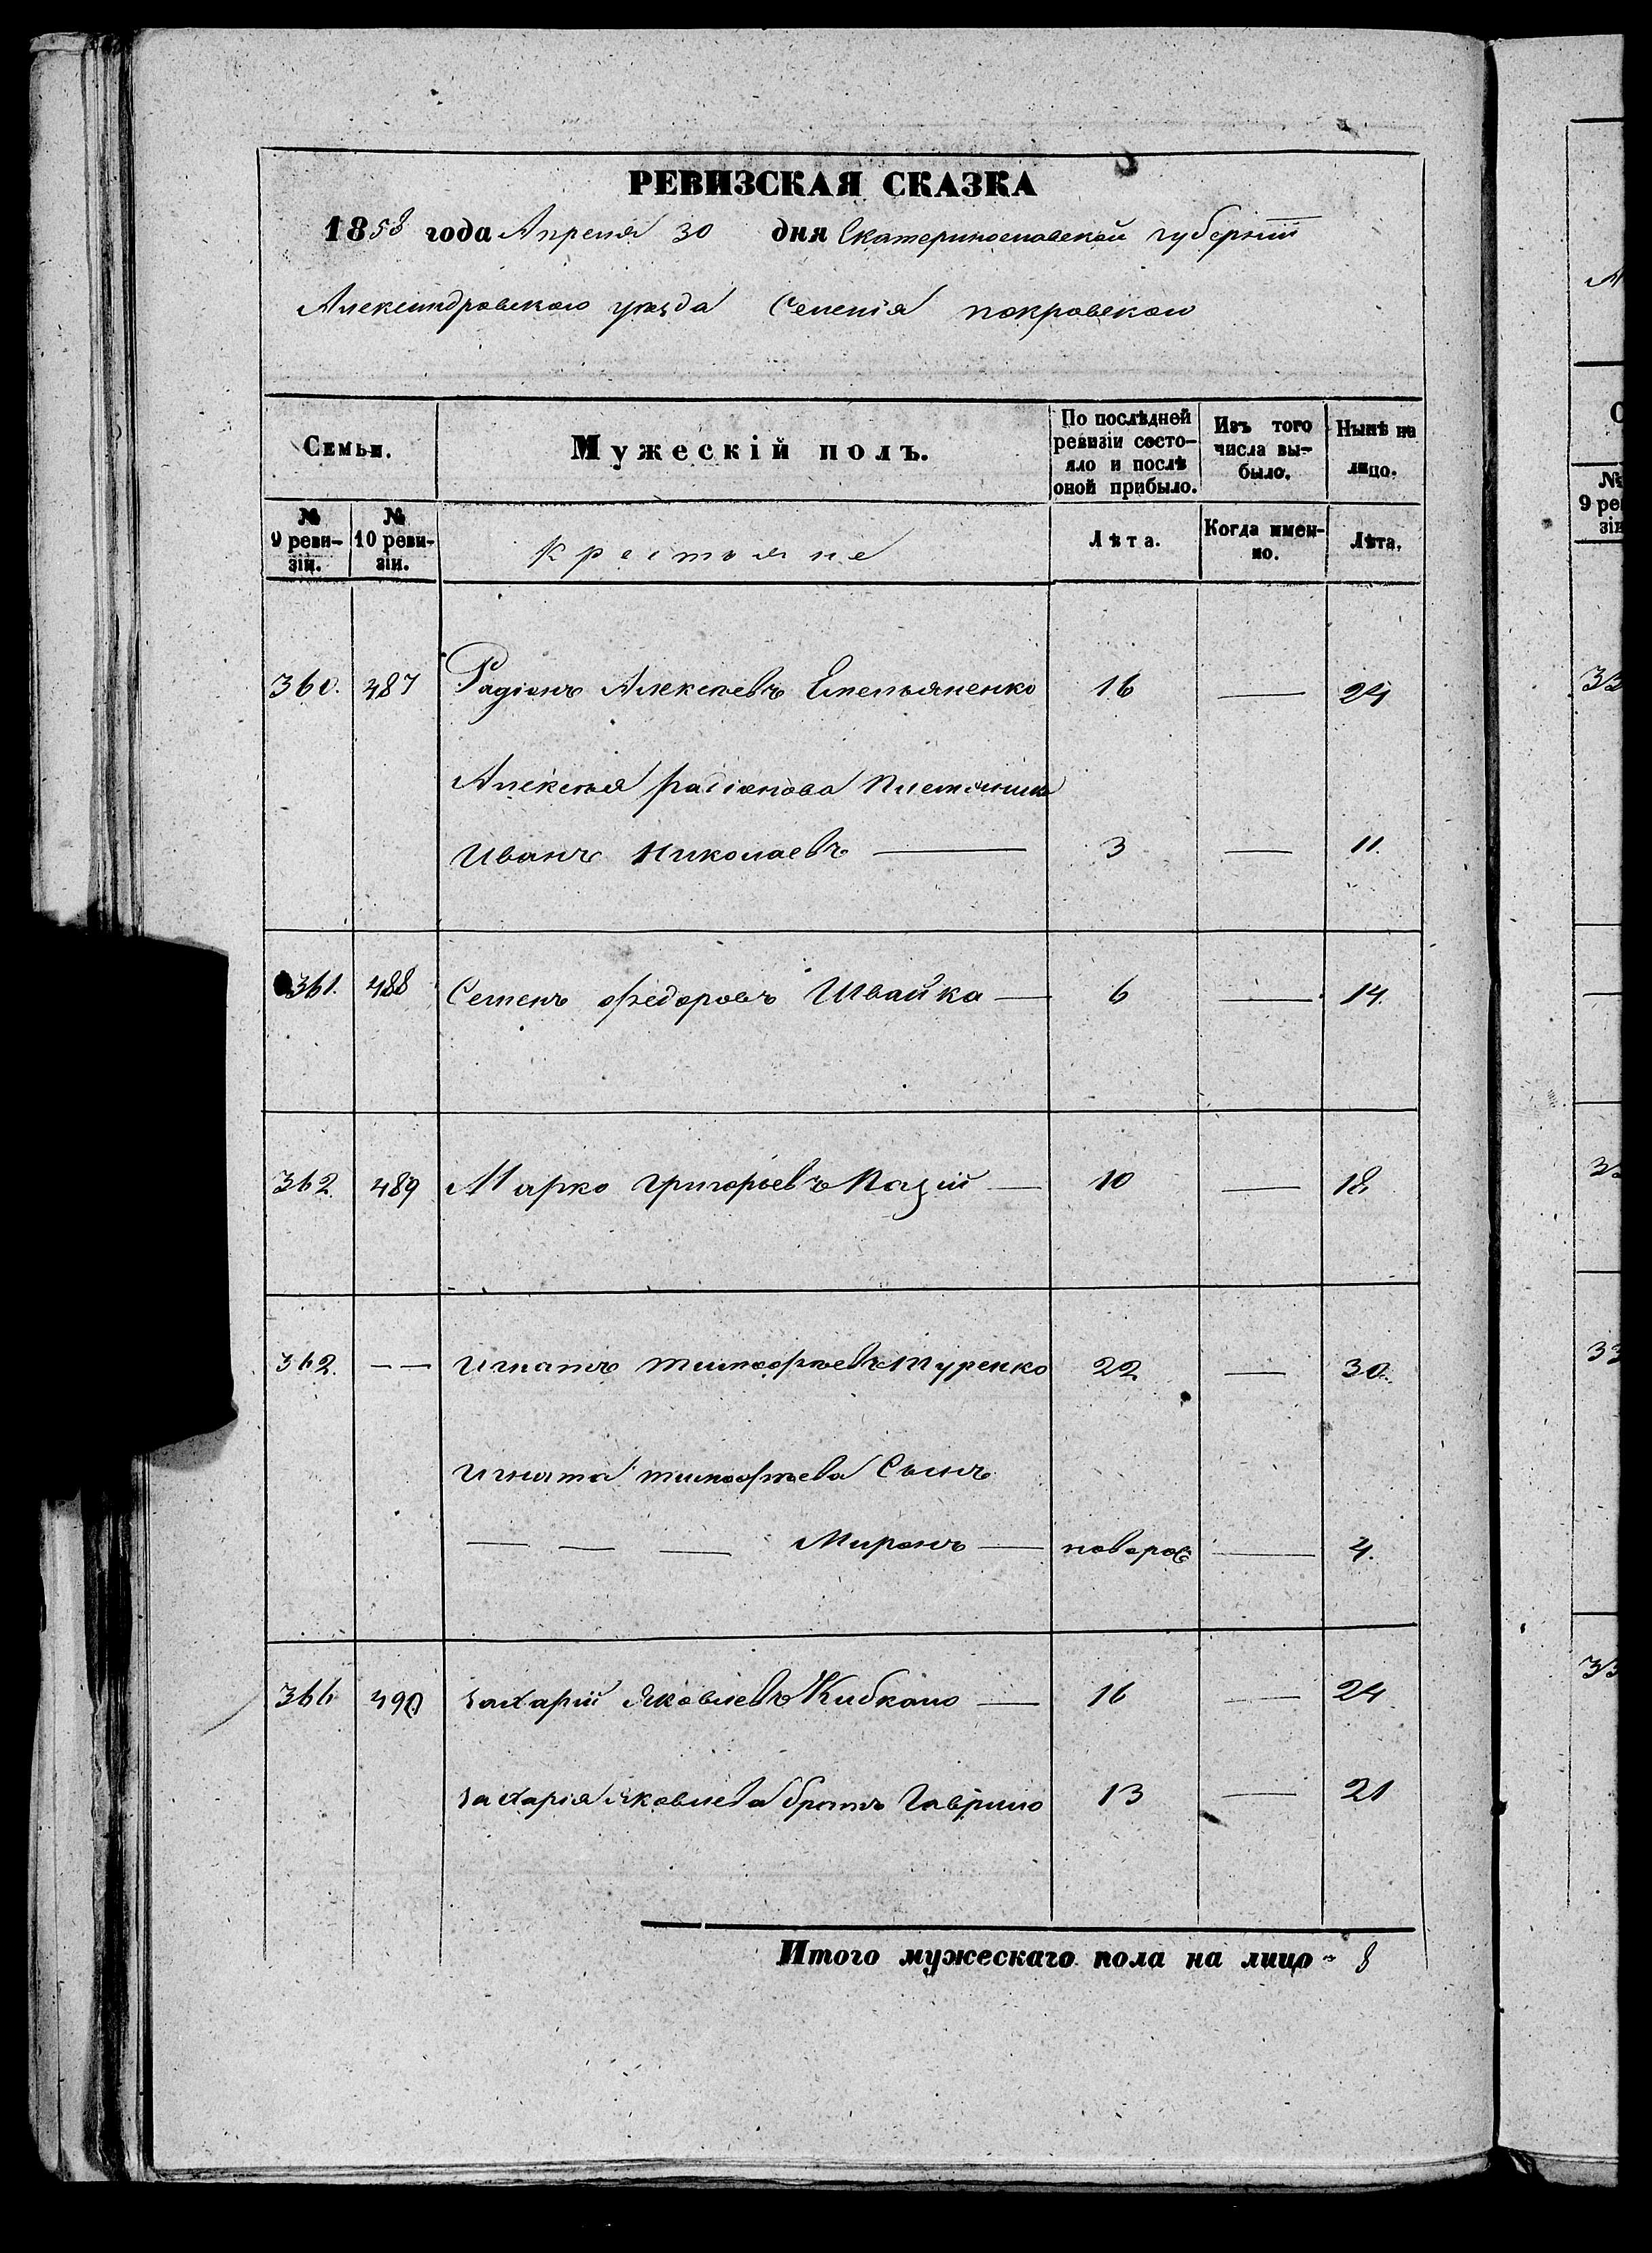 РЕВИЗСКАЯ СКАЗКА
1858 года Апреля 30 дня Екатеринославской губерніи
Александровского уезда Селенія покровского
Семьи.
Мужескій полъ.
По послѣдней ревизіи состояло и послѣ оной прибыло.
Изъ того числа выбыло.
Нынѣ на лицо.
№ 9 ревизіи.
№ 10 ревизіи.
Крестьяне
Лѣта.
Когда именно.
Лѣта.
360. 487 Радіонъ Алексѣевъ Емельяненко 16 — 24
Алексѣя радіонова племянникъ
Иванъ Николаевъ — 3 — 11.
361. 488 Семенъ федоровъ Швайка — 6 — 14.
362. 489 Марко григорьевъ Пазій — 10 — 18
362. — — Игнатъ тимофѣевъ туренко 22 — 30.
Игната тимофѣева Сынъ
— — — Миронъ — новорож — 4.
366 490 захарій Яковлевъ Кибкало — 16 — 24
захарія яковлева братъ Гаврило 13 — 21
Итого мужескаго пола на лицо - 8
33
33
33